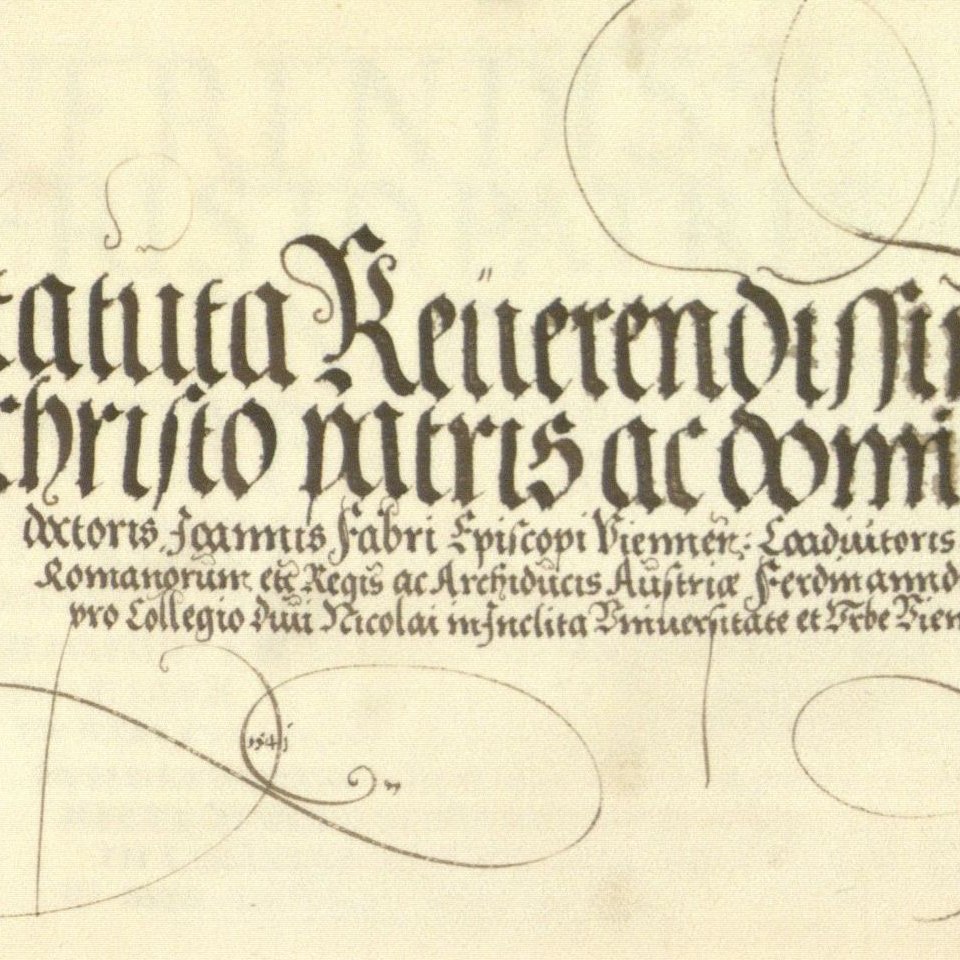 tatuta Reűerendissi
christo patris ac domi
doctoris Joannis Fabri Episcopi Viennen̄: Coadiuitoris
Romanorum etc̄ Regis ac Archiducis Austriæ Ferdinannd
pro Collegio Diui Nicolai in Inclita Vniuersitate et Vrbe Vien
1541